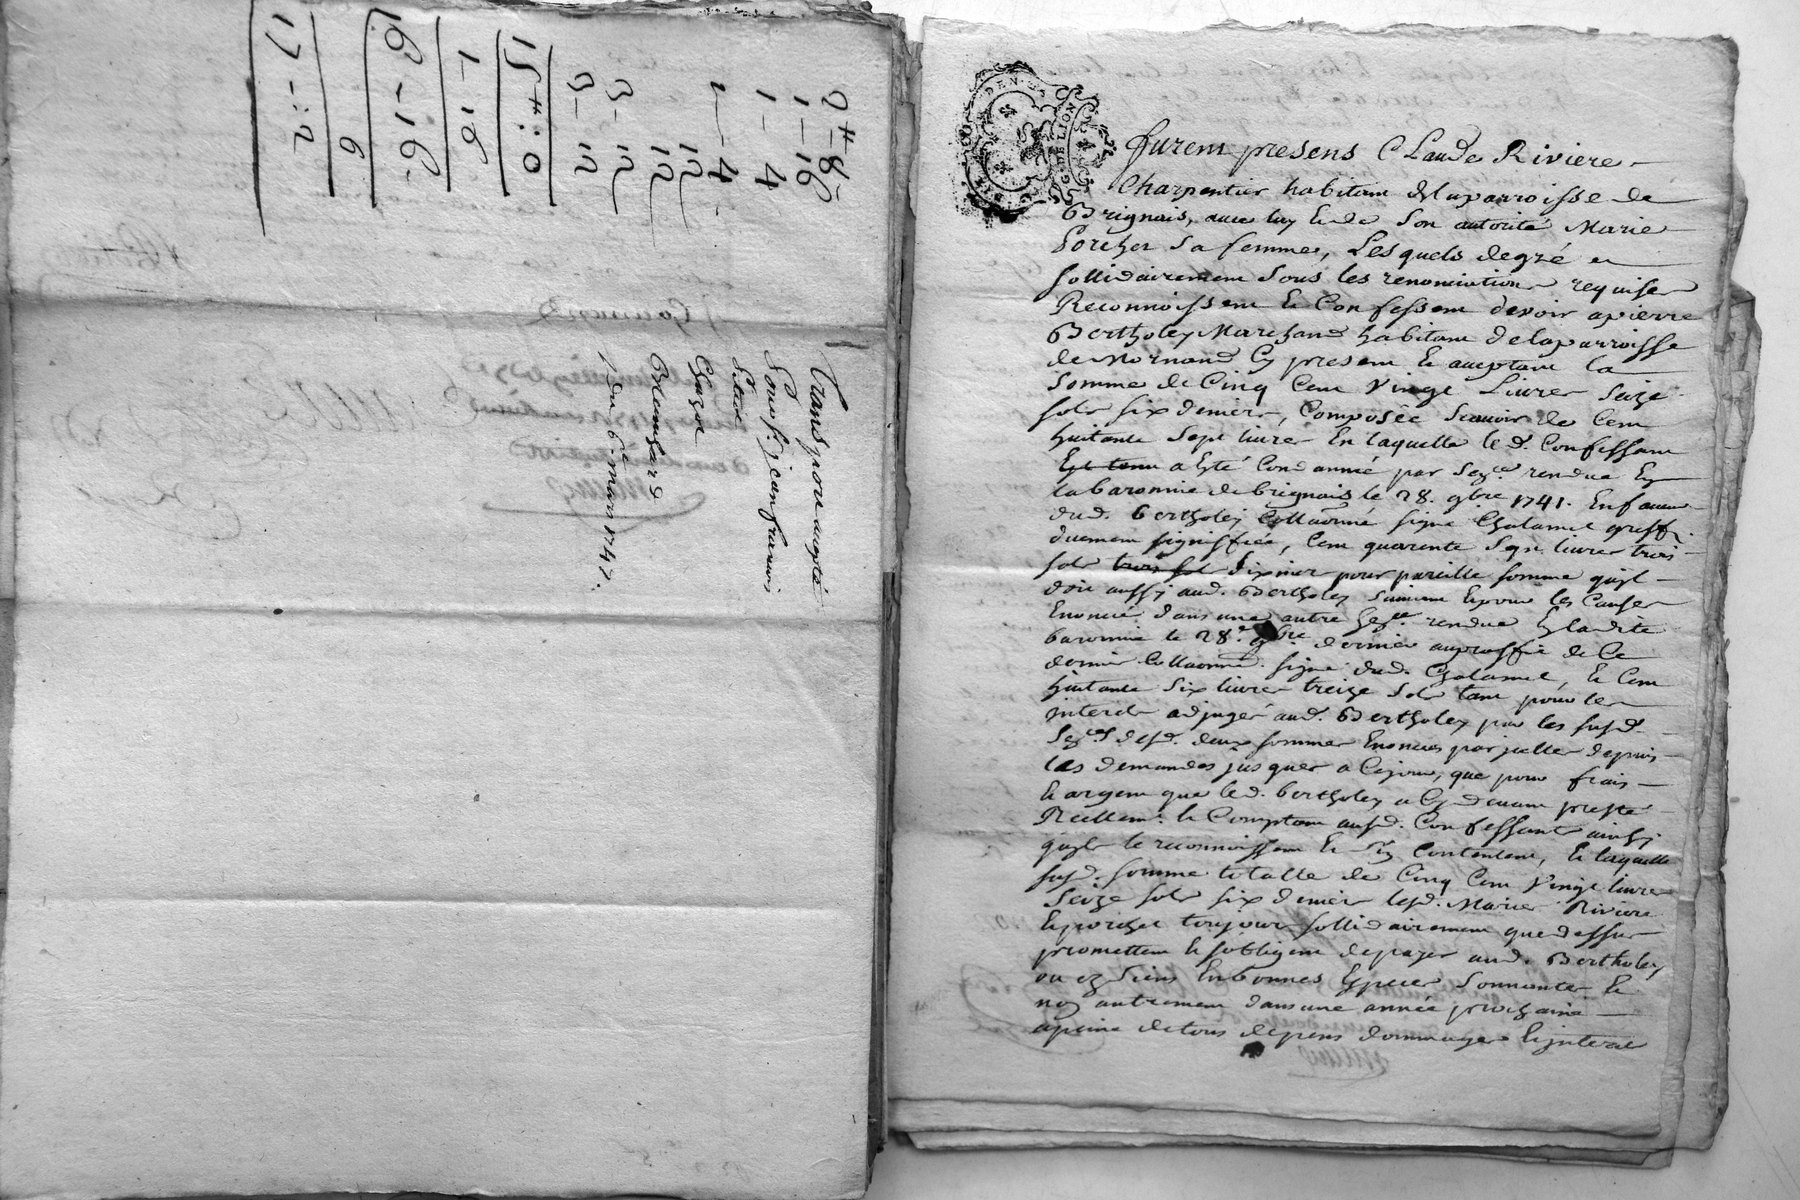 2# 8s
1 - 16
1 - 4
1 - 4
12
12
3 - 12
3 - 12
15# : 0
1 - 16
16 - 16
6
17 - : 2
Transport accepté
Sous s. jean francois
Chazot
Blanchard
du 6e mars 1747.
GDELION
Furent presens Claude Riviere
Charpentier habitant delaparroisse de
Brignais, avec luy & de Son autorité Marie
Porcher Sa femme, Lesquels degré et
sollidairement Sous les renonciations requises
Reconnoissent & Confessent devoir apierre
Bertholey Marchand habitant delaparroisse
de Mornand Cy present & aceptant la
Somme de Cinq Cent Vingt Livres Seize
sols six deniers, Composée Scavoir de Cent
huitante Sept livres En laquelle le d. Confessant
Est tenu a Esté Condanné par Sen.ce rendue En
la baronnie de brignais le 28. 9bre 1741. En faveur
dud. bertholey Collationné signé Chalamel greff.
duement signiffiée, Cent quarente Sept livres trois
sols trois sols dixneuf pour pareille somme quil
doit aussy aud. Bertholey Suivant & pour les Causes
Enoncée dans une autre Sen.ce rendue En ladite
baronnie le 28.e 9bre dernier auproffit de Ce
dernier Collationné signé dud. Chalamel, & Cent
huitante Six livres treize Sols tant pour les
interets adjugés aud. Bertholey par les susd.
Sen.ces desd. deux sommes Enoncées par jcelles depuis
les demandes jusques a Cejour, que pour frais
& argent que led. bertholey a Cy devant presté
Reellemt. & Comptant ausd. Confessants ainsy
quils le reconnoissent & s'en Contentent, & laquelle
susd. somme totalle de Cinq Cent Vingt livres
Seize sols six deniers lesd. Mariés Riviere
& porcher toujours sollidairement que dessus
promettent & sobligent de payer aud. Bertholey
ou es Siens En bonnes Especes Sonnantes &
non autrement dans une année prochaine
apeine de tous depens dommages & interets